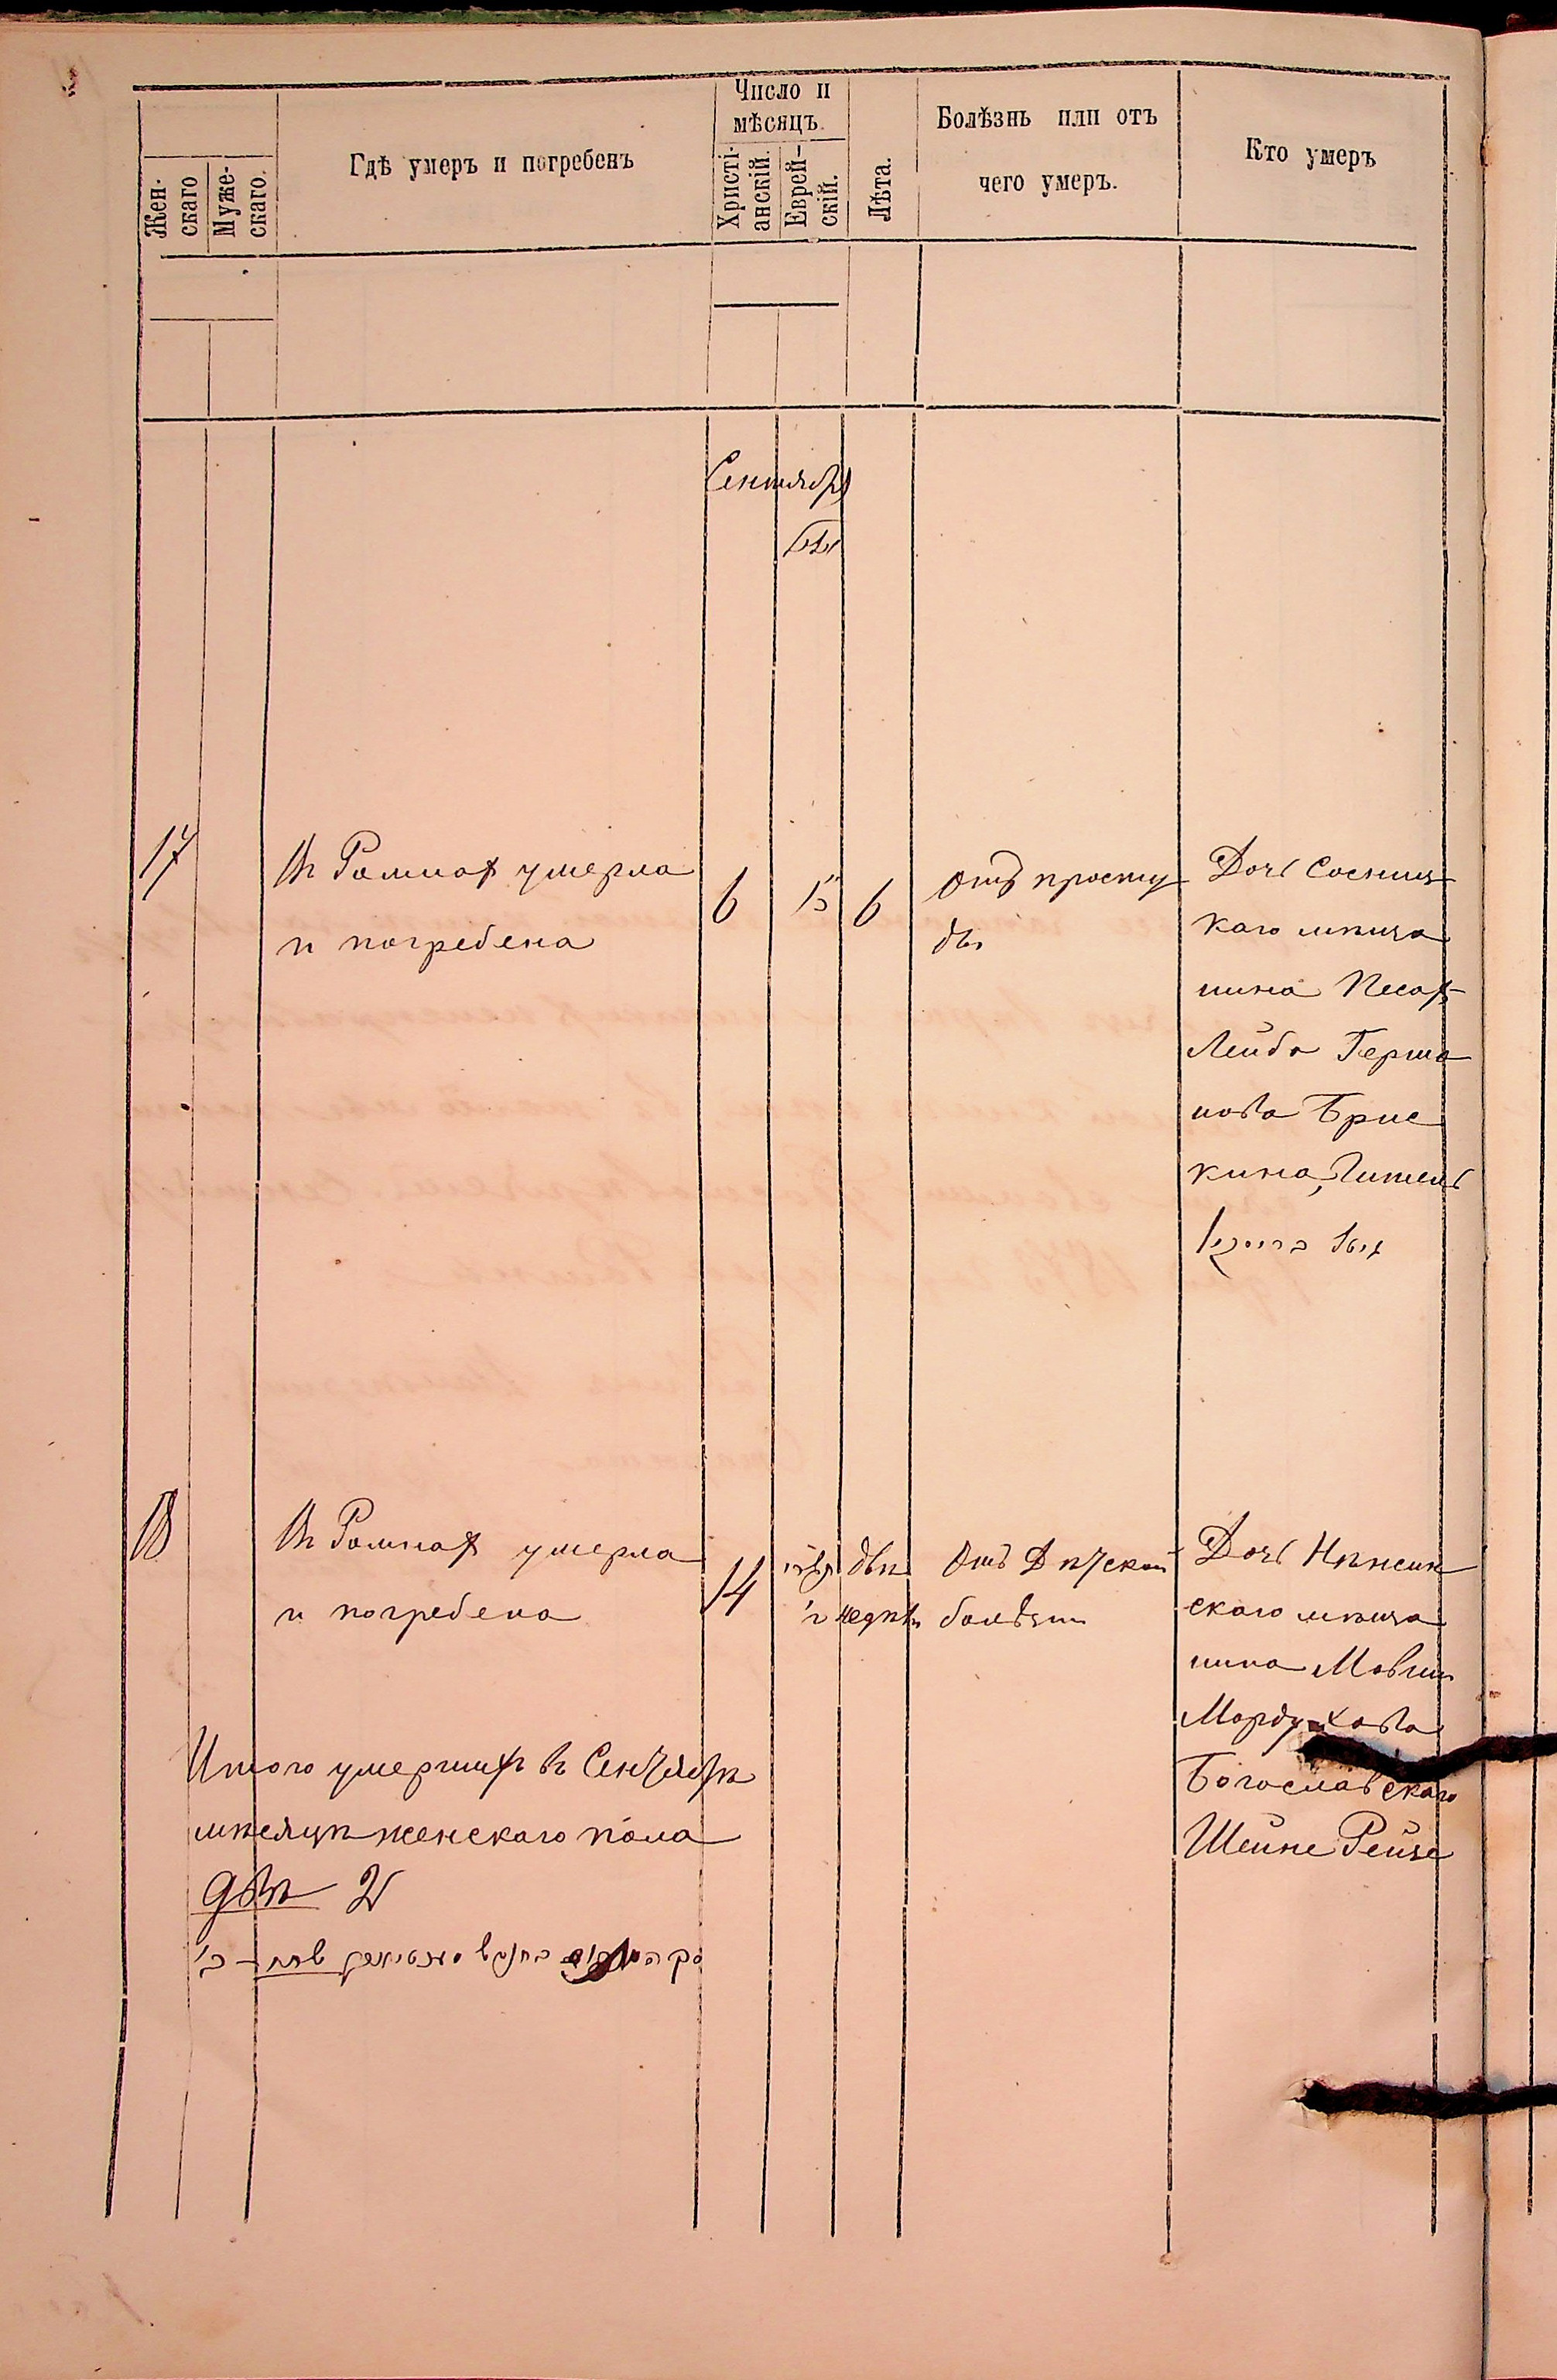 Жен-
скаго
Муже-
скаго.
Гдѣ умеръ и погребенъ
Число и
мѣсяцъ.
Христі-
анскій.
Еврей-
скій.
Лѣта.
Болѣзнь или отъ
чего умеръ.
Кто умеръ
Сентябрь
17
Въ Ромнах умерла
и погребена
6
6
Отъ просту
ды
Дочь Сосниц
каго мѣща
нина Песах
Лейба Герша
нова Брис
кина, Гитель
18
Въ Ромнах умерла
и погребена
14
двѣ
недѣли
Отъ Дѣтской
болѣзни
Дочь Нѣжин
скаго мѣща
нина Мовши
Мордухова
Богославскаго
Шейне Рейзе
Итого умерших въ Сентябрѣ
мѣсяцѣ женскаго пола
двѣ 2